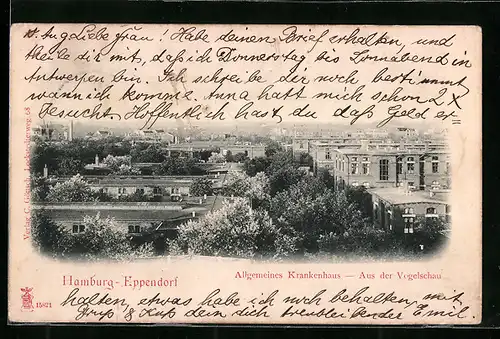 10. Aug Liebe Frau! Habe deinen Brief erhalten, und
theile dir mit, daß ich Donnerstag bis Sonnabend in
Antwerpen bin. Ich schreibe dir noch bestimmt
wann ich komme. Anna hatt mich schon 2 X
besucht. Hoffentlich hast du daß Geld er=
Verlag C. Griese jr., 58
Hamburg-Eppendorf
Allgemeines Krankenhaus — Aus der Vogelschau
15621
halten, etwas habe ich noch behalten, mit
Gruß & Kuß dein dich treuliebender Emil.